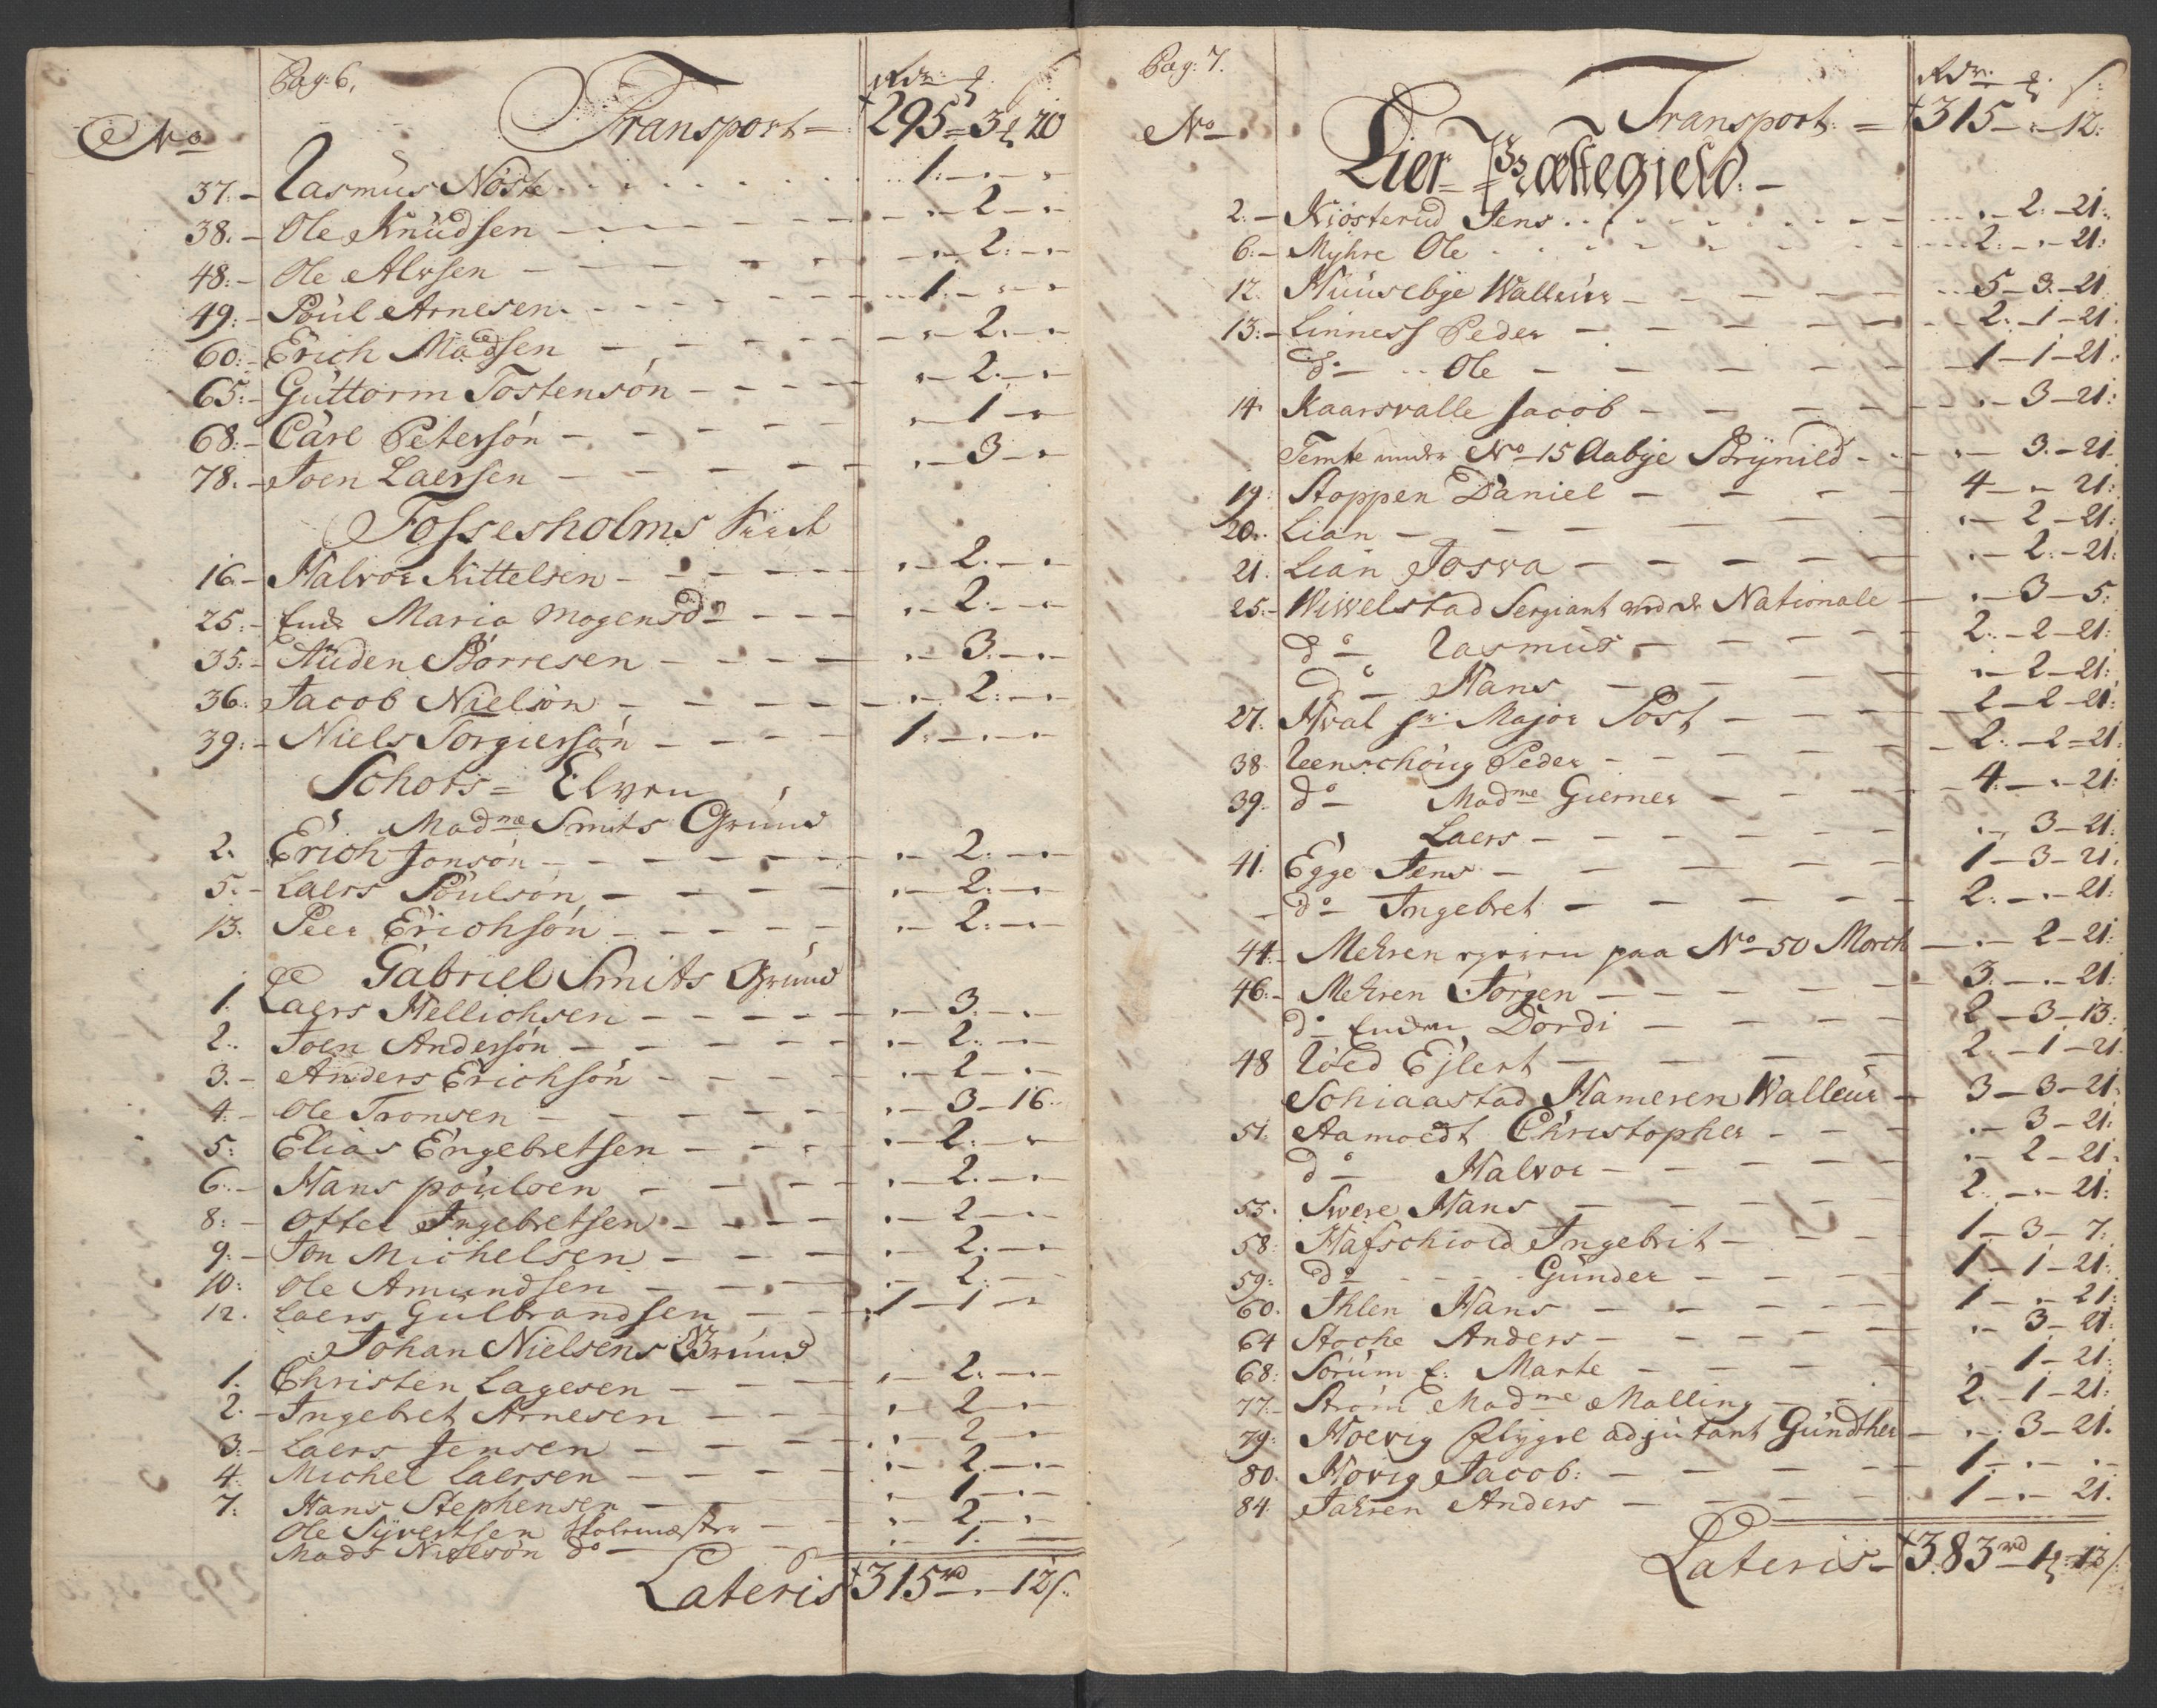 Pag: 6.
Rdr: ß
No Transport = 295 = 3 20
37. Rasmus Nöste 1. - " - "
38. Ole Knudsen " - 2 - "
48. Ole Alvsen " - 2. - "
49. Poul Arnesen 1. - " - "
60. Erich Madsen " - 2. - "
65. Guttorm Tostensön " - 2. - "
68. Carl Petersön " - 1 - "
78. Joen Laersen " - 3 - "
Fossesholms
16. Halvor Kittelsen " - 2. - "
25. Enche Maria Mogensd: " - 2: - "
35. Auden Börresen " - 3. - "
36. Jacob Nielsön " - 2: - "
39. Niels Torgiersön 1. - " - "
Schots = Elven
Madme Smits Grund
2. Erich Jonsön " - 2: - "
5. Laers Poulsön " - 2: - "
13. Peer Erichsön " - 2: - "
Gabriel Smits Grund
1. Laers Hellichsen " - 3. - "
2. Joen Andersön " - 2: - "
3. Anders Erichsön " - 2 - "
4. Ole Tronsen " - 3 - 16
5: Elias Engebretsen " - 2: - "
6. Hans poulsen " - 2. - "
8: Otter Ingebretsen " - 2 - "
9. Jon Michelsen " - 2. - "
10: Ole Amundsen " - 2: - "
12. Laers Gulbrandsen 1 - 1 - "
Johan Nielsens Grund
1. Christen Lagesen " - 2. - "
2. Ingebret Arnesen " - 2 - "
3. Laers Jensen " - 2 - "
4. Michel Laersen " - 2. - "
7: Hans Stephensen " - 1 - "
Ole Syvertsen Skolemester " - 2. - "
Mads Nielsön do " - 1. -
Lateris 315 rd " - 12 ß.
Pag: 7.
Rdr. ß:
No Transport: = 315 - " - 12:
Lier Præstegield.
2. Kiösterud Jens " - 2. - 21.
6. Myhre Ole 2: - " - 21:
12. Huusebye Walleur 5 - 3 - 21
13. Linness Peder 2: - 1 - 21
do Ole 1 - 1 - 21:
14. Kaarsvalle Jacob " - 3 - 21:
Temte under No 15 Aabye Brynild " - 3. - 21
19: Stoppen Daniel 4 - " - 21:
20. Lian " - 2 - 21:
21. Lian Josva " - 2. - 21:
25. Wivvelstad Sergiant ved de Nationale " - 3 - 5:
do Rasmus 2: - 2 - 21:
do Hans " - 2 - 21:
27. Hval hr: Major Post 2 - 2 - 21:
38. Reenschoug Peder 2: - 2 = 21:
39. do Madme Giemer 4. - " - 21:
Laers " - 3 - 21:
41. Egge Jens 1 - 3 - 21.
do Ingebret 2: - " - 21:
44. Mehren paa No 50 Morch " - 2 - 21:
46. Mehren Jörgen 3. - " - 21:
do Enchen Dordi 2 - 3 - 13:
48 Röed Ejlert 2. - 1 - 21
Schiaastad Kameren Walleur 3 - 3 - 21
51. Aamoedt Christopher " - 3 - 21:
do Halvor " - 2 - 21:
55. Svere Hans 2. - " - 21:
58. Hafschiold Ingebrit 1 - 3 - 7:
59: do Gunder 1 - 1 - 21:
60. Ihlen Hans 1 - " - 21:
64 Stoche Anders " - 3 - 21:
68: Sörum E: Marte " - 1 - 21:
77. Ström Madme Malling 2. - 1 - 21:
79: Hoevig flygel adjutant Gundther " - 3 - 21.
80. Hövig Jacob: 1. - " - "
84. Jahren Anders 1 - " - 21.
Lateris 383 rd 1 - 13 ß: